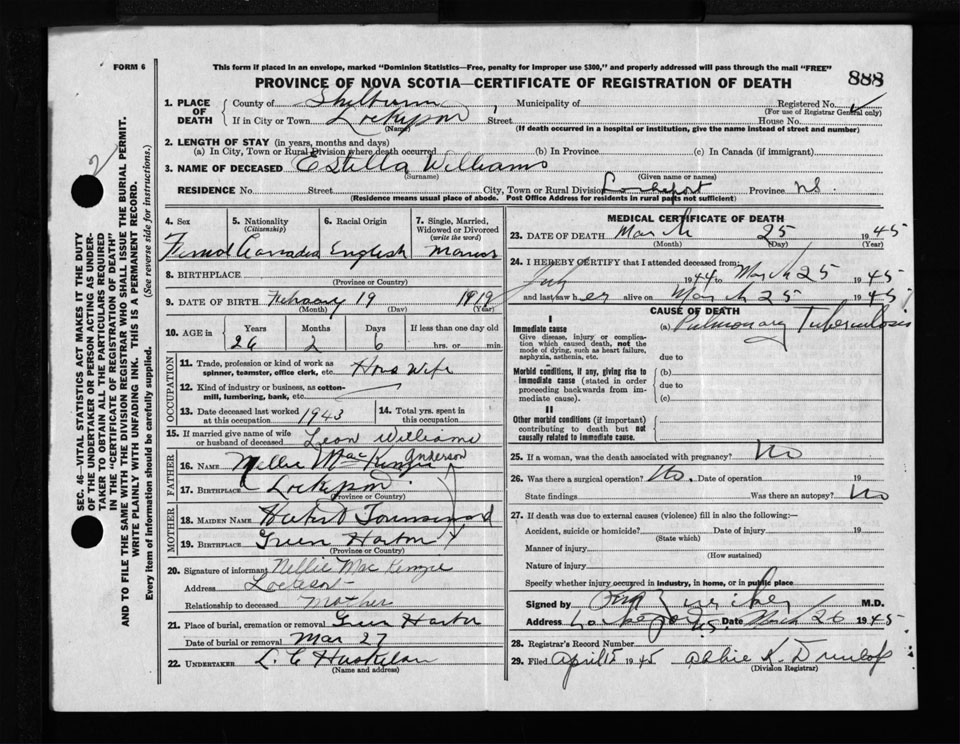 FORM 6
This form if placed in an envelope, marked "Dominion Statistics—Free, penalty for improper use $300," and properly addressed will pass through the mail "FREE"
PROVINCE OF NOVA SCOTIA—CERTIFICATE OF REGISTRATION OF DEATH
888
2
SEC. 46—VITAL STATISTICS ACT MAKES IT THE DUTY
OF THE UNDERTAKER OR PERSON ACTING AS UNDER-
TAKER TO OBTAIN ALL THE PARTICULARS REQUIRED
IN THE "CERTIFICATE OF REGISTRATION OF DEATH"
AND TO FILE THE SAME WITH THE DIVISION REGISTRAR WHO SHALL ISSUE THE BURIAL PERMIT.
WRITE PLAINLY WITH UNFADING INK. THIS IS A PERMANENT RECORD.
Every item of information should be carefully supplied. (See reverse side for instructions.)
1. PLACE OF DEATH
County of Municipality of Registered No.
(For use of Registrar General only)
If in City or Town Lockeport Street House No.
(Name) (If death occurred in a hospital or institution, give the name instead of street and number)
2. LENGTH OF STAY (in years, months and days)
(a) In City, Town or Rural Division where death occurred (b) In Province (c) In Canada (if immigrant)
3. NAME OF DECEASED Estella Williams
(Surname) (Given name or names)
RESIDENCE No. Street City, Town or Rural Division Lockeport Province N.S.
(Residence means usual place of abode. Post Office Address for residents in rural parts not sufficient)
4. Sex
5. Nationality (Citizenship)
6. Racial Origin
English
7. Single, Married, Widowed or Divorced (write the word)
8. BIRTHPLACE
(Province or Country)
9. DATE OF BIRTH February 19 1919
(Month) (Day) (Year)
10. AGE in
Years Months Days If less than one day old
26 2 6 hrs. or min.
OCCUPATION
11. Trade, profession or kind of work as spinner, teamster, office clerk, etc. Hous Wife
12. Kind of industry or business, as cotton-mill, lumbering, bank, etc.
13. Date deceased last worked at this occupation 1943
14. Total yrs. spent in this occupation
15. If married give name of wife or husband of deceased Leon Williams
FATHER
Anderson
16. NAME Nellie MacKenzie
17. BIRTHPLACE Lockeport
(Province or Country)
MOTHER
18. MAIDEN NAME Townsend
19. BIRTHPLACE Green Harbor
(Province or Country)
20. Signature of informant Nellie Mac Kenzie
Address
Relationship to deceased Mother
21. Place of burial, cremation or removal Green Harbor
Date of burial or removal Mar 27
22. UNDERTAKER L. C.
(Name and address)
MEDICAL CERTIFICATE OF DEATH
23. DATE OF DEATH March 25 1945
(Month) (Day) (Year)
24. I HEREBY CERTIFY that I attended deceased from:
July 1944 to March 25 1945
and last saw her alive on March 25 1945
CAUSE OF DEATH
I
Immediate cause
Give disease, injury or complication which caused death, not the mode of dying, such as heart failure, asphyxia, asthenia, etc.
(a) Pulmonary Tuberculosis
due to
Morbid conditions, if any, giving rise to immediate cause (stated in order proceeding backwards from immediate cause).
(b)
due to
(c)
II
Other morbid conditions (if important) contributing to death but not causally related to immediate cause.
25. If a woman, was the death associated with pregnancy? No
26. Was there a surgical operation? No. Date of operation 19
State findings Was there an autopsy? No
27. If death was due to external causes (violence) fill in also the following:—
Accident, suicide or homicide? Date of injury 19
(State which)
Manner of injury
(How sustained)
Nature of injury
Specify whether injury occurred in industry, in home, or in public place
Signed by M.D.
Address Lockeport N.S. Date March 26 1945
28. Registrar's Record Number
29. Filed April 5 1945 Abbie K. Dunlop
(Division Registrar)